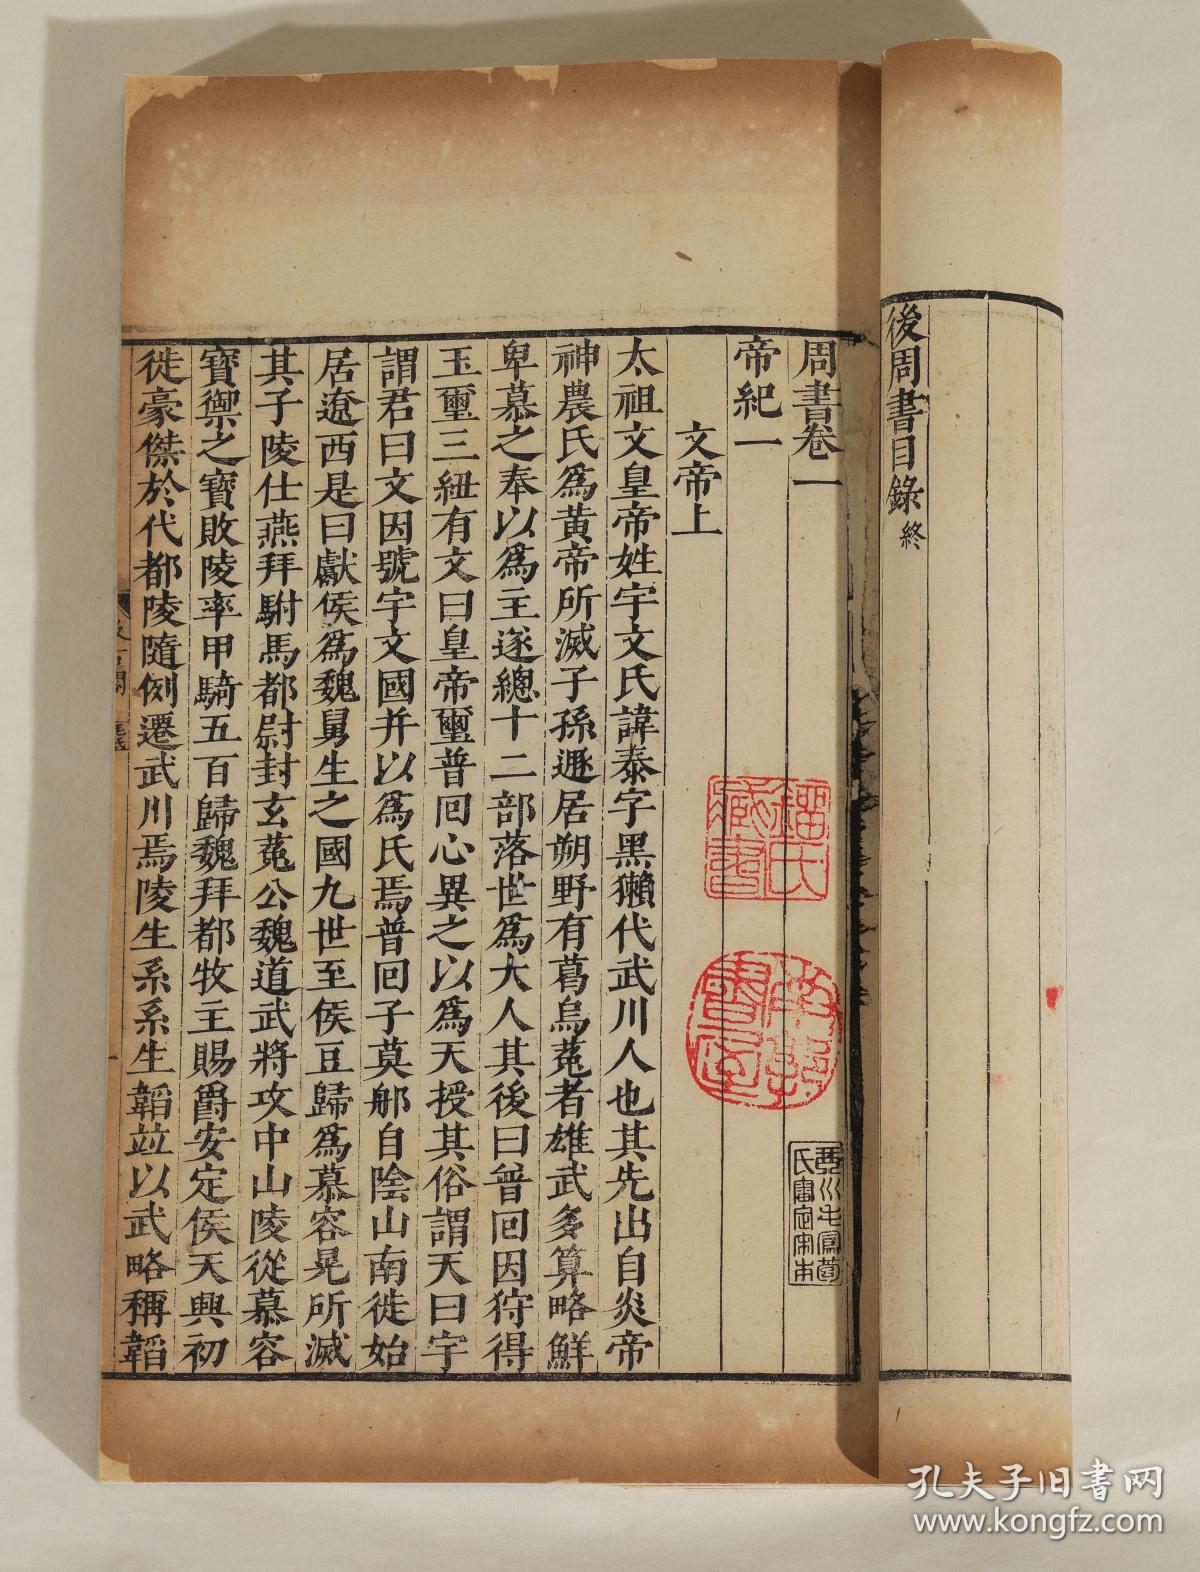 後周書目錄終
周書卷一
帝紀一
文帝上
太祖文皇帝姓宇文氏諱泰字黑獺代武川人也其先出自炎帝
神農氏爲黃帝所滅子孫遯居朔野有葛烏菟者雄武多算略鮮
卑慕之奉以爲主遂總十二部落世爲大人其後曰普回因狩得
玉璽三紐有文曰皇帝璽普回心異之以爲天授其俗謂天曰宇
謂君曰文因號宇文國并以爲氏焉普回子莫那自陰山南徙始
居遼西是曰獻侯爲魏舅生之國九世至侯豆歸爲慕容晃所滅
其子陵仕燕拜駙馬都尉封玄菟公魏道武將攻中山陵從慕容
寶禦之寶敗陵率甲騎五百歸魏拜都牧主賜爵安定侯天興初
徙豪傑於代都陵隨例遷武川焉陵生系系生韜竝以武略稱韜
汲古閣
氏審定宋本
藏書
孔夫子旧书网
www.kongfz.com